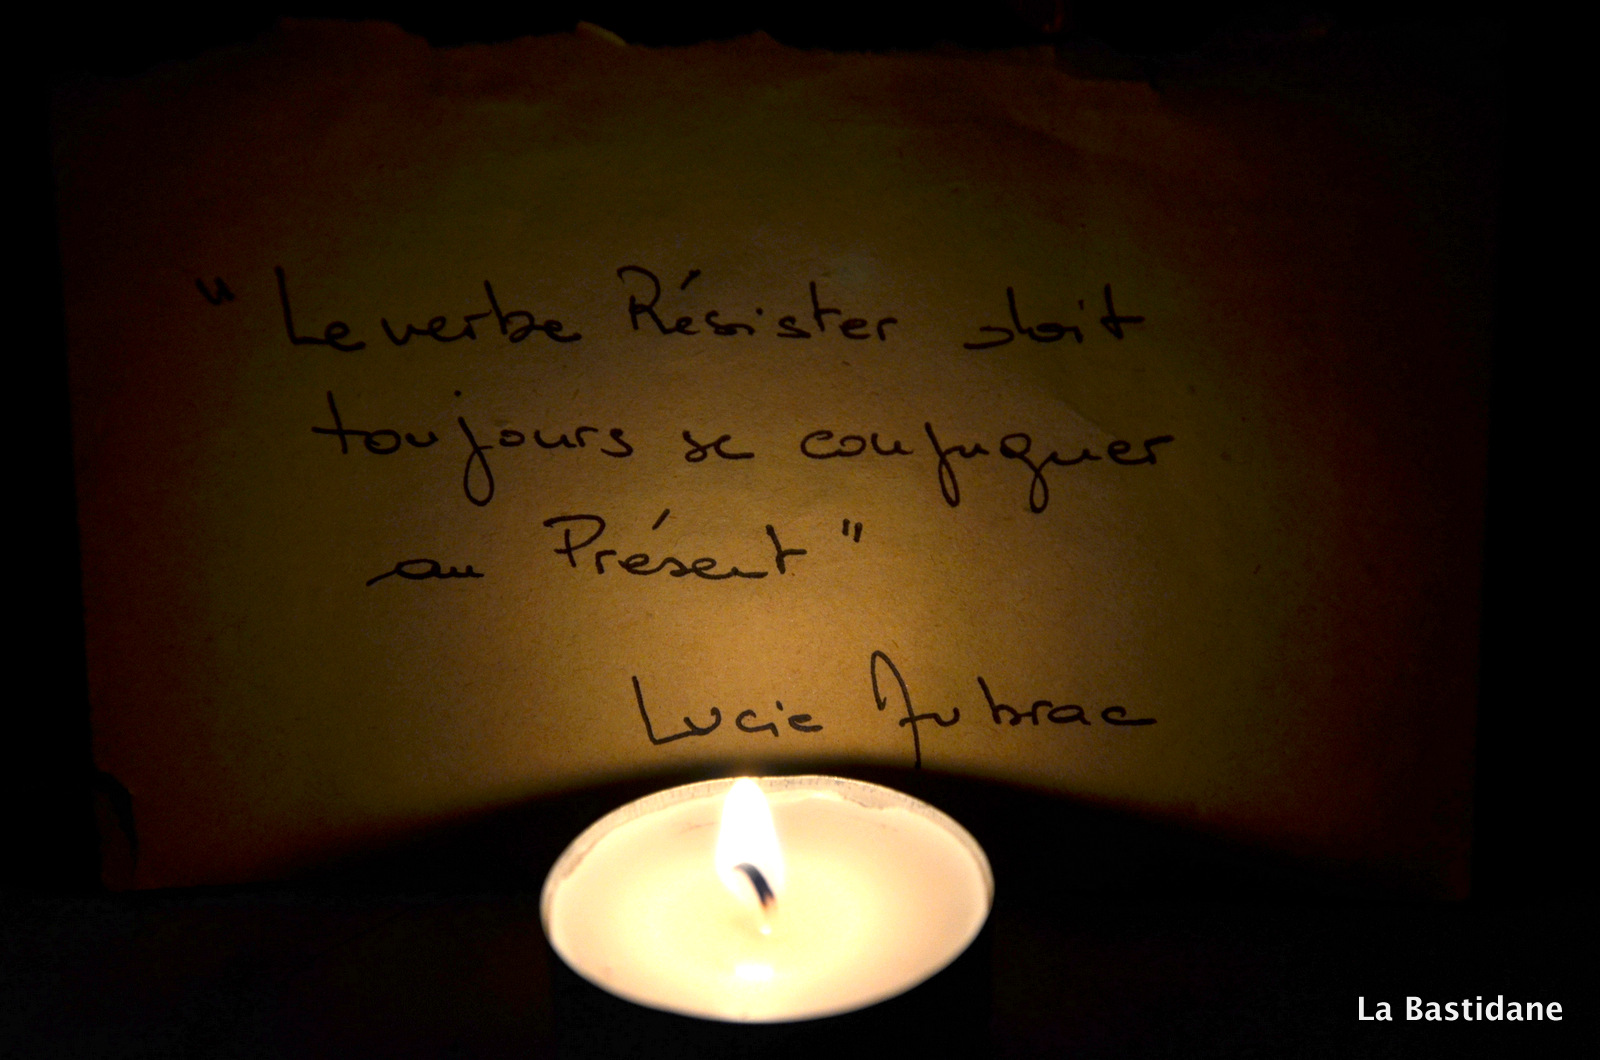 "Le verbe Résister doit
toujours se conjuguer
au Présent"
Lucie Aubrac
La Bastidane